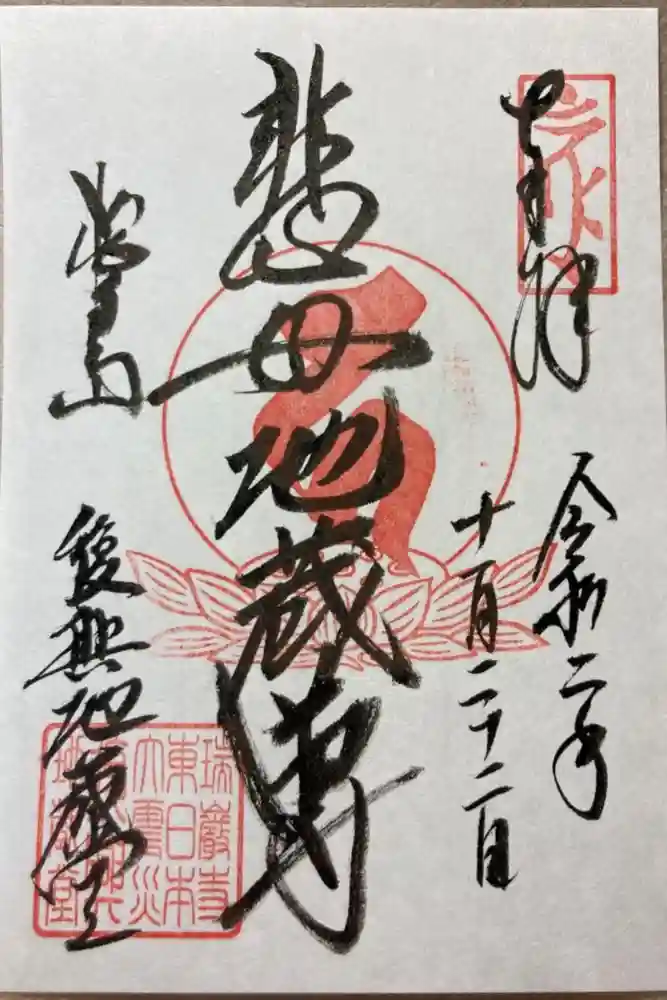 奉拝
令和二年
十月二十二日
悲母地蔵尊
松島
復興地蔵堂
瑞巖寺
東日本
大震災
地蔵堂